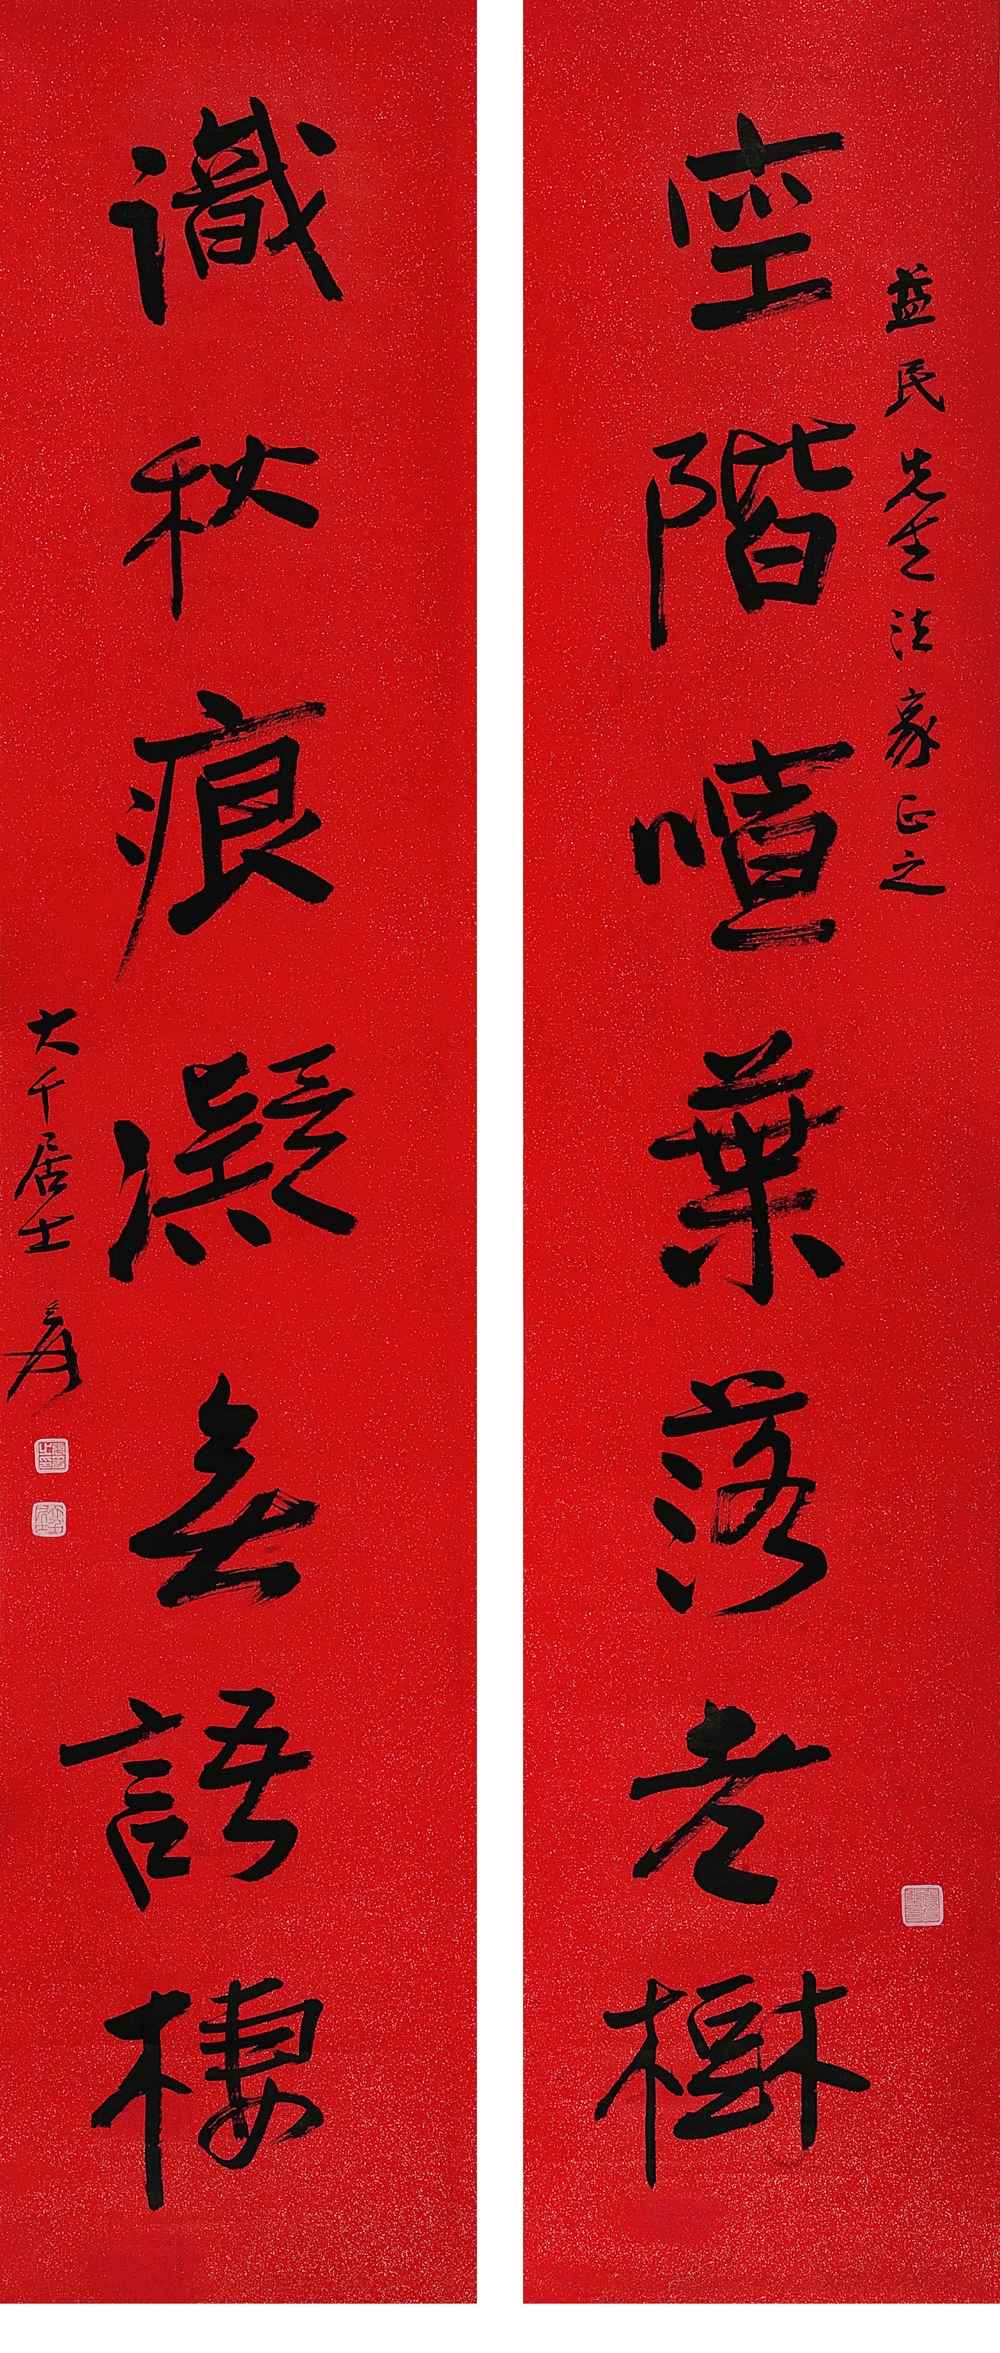 益民先生法家正之
空階喧葉落老樹
識秋痕凝無語棲
大千居士爰